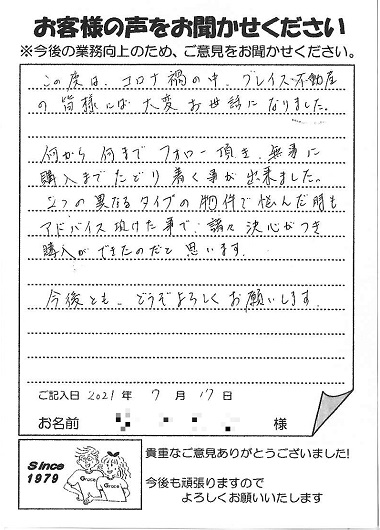 お客様の声をお聞かせください
※今後の業務向上のため、ご意見をお聞かせください。
この度は、コロナ禍の中、プレイス不動産
の皆様には大変お世話になりました。
何から何までフォロー頂き、無事に
購入までたどり着く事が出来ました。
2つの異なるタイプの物件で悩んだ時も
アドバイス頂けた事で、諸々決心がつき
購入ができたのだと思います。
今後とも、どうぞよろしくお願いします。
ご記入日 2021年 7月 17日
お名前 様
Since
1979
Grace
Grace
貴重なご意見ありがとうございました!
今後も頑張りますので
よろしくお願いいたします